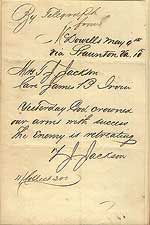 By Telegraph
McDowells May 9th
via Staunton Va. 10
Mrs T J Jackson
Care James P Irwin
Yesterday God crowned
our arms with success
the enemy is retreating
T J Jackson
11 Collect 300